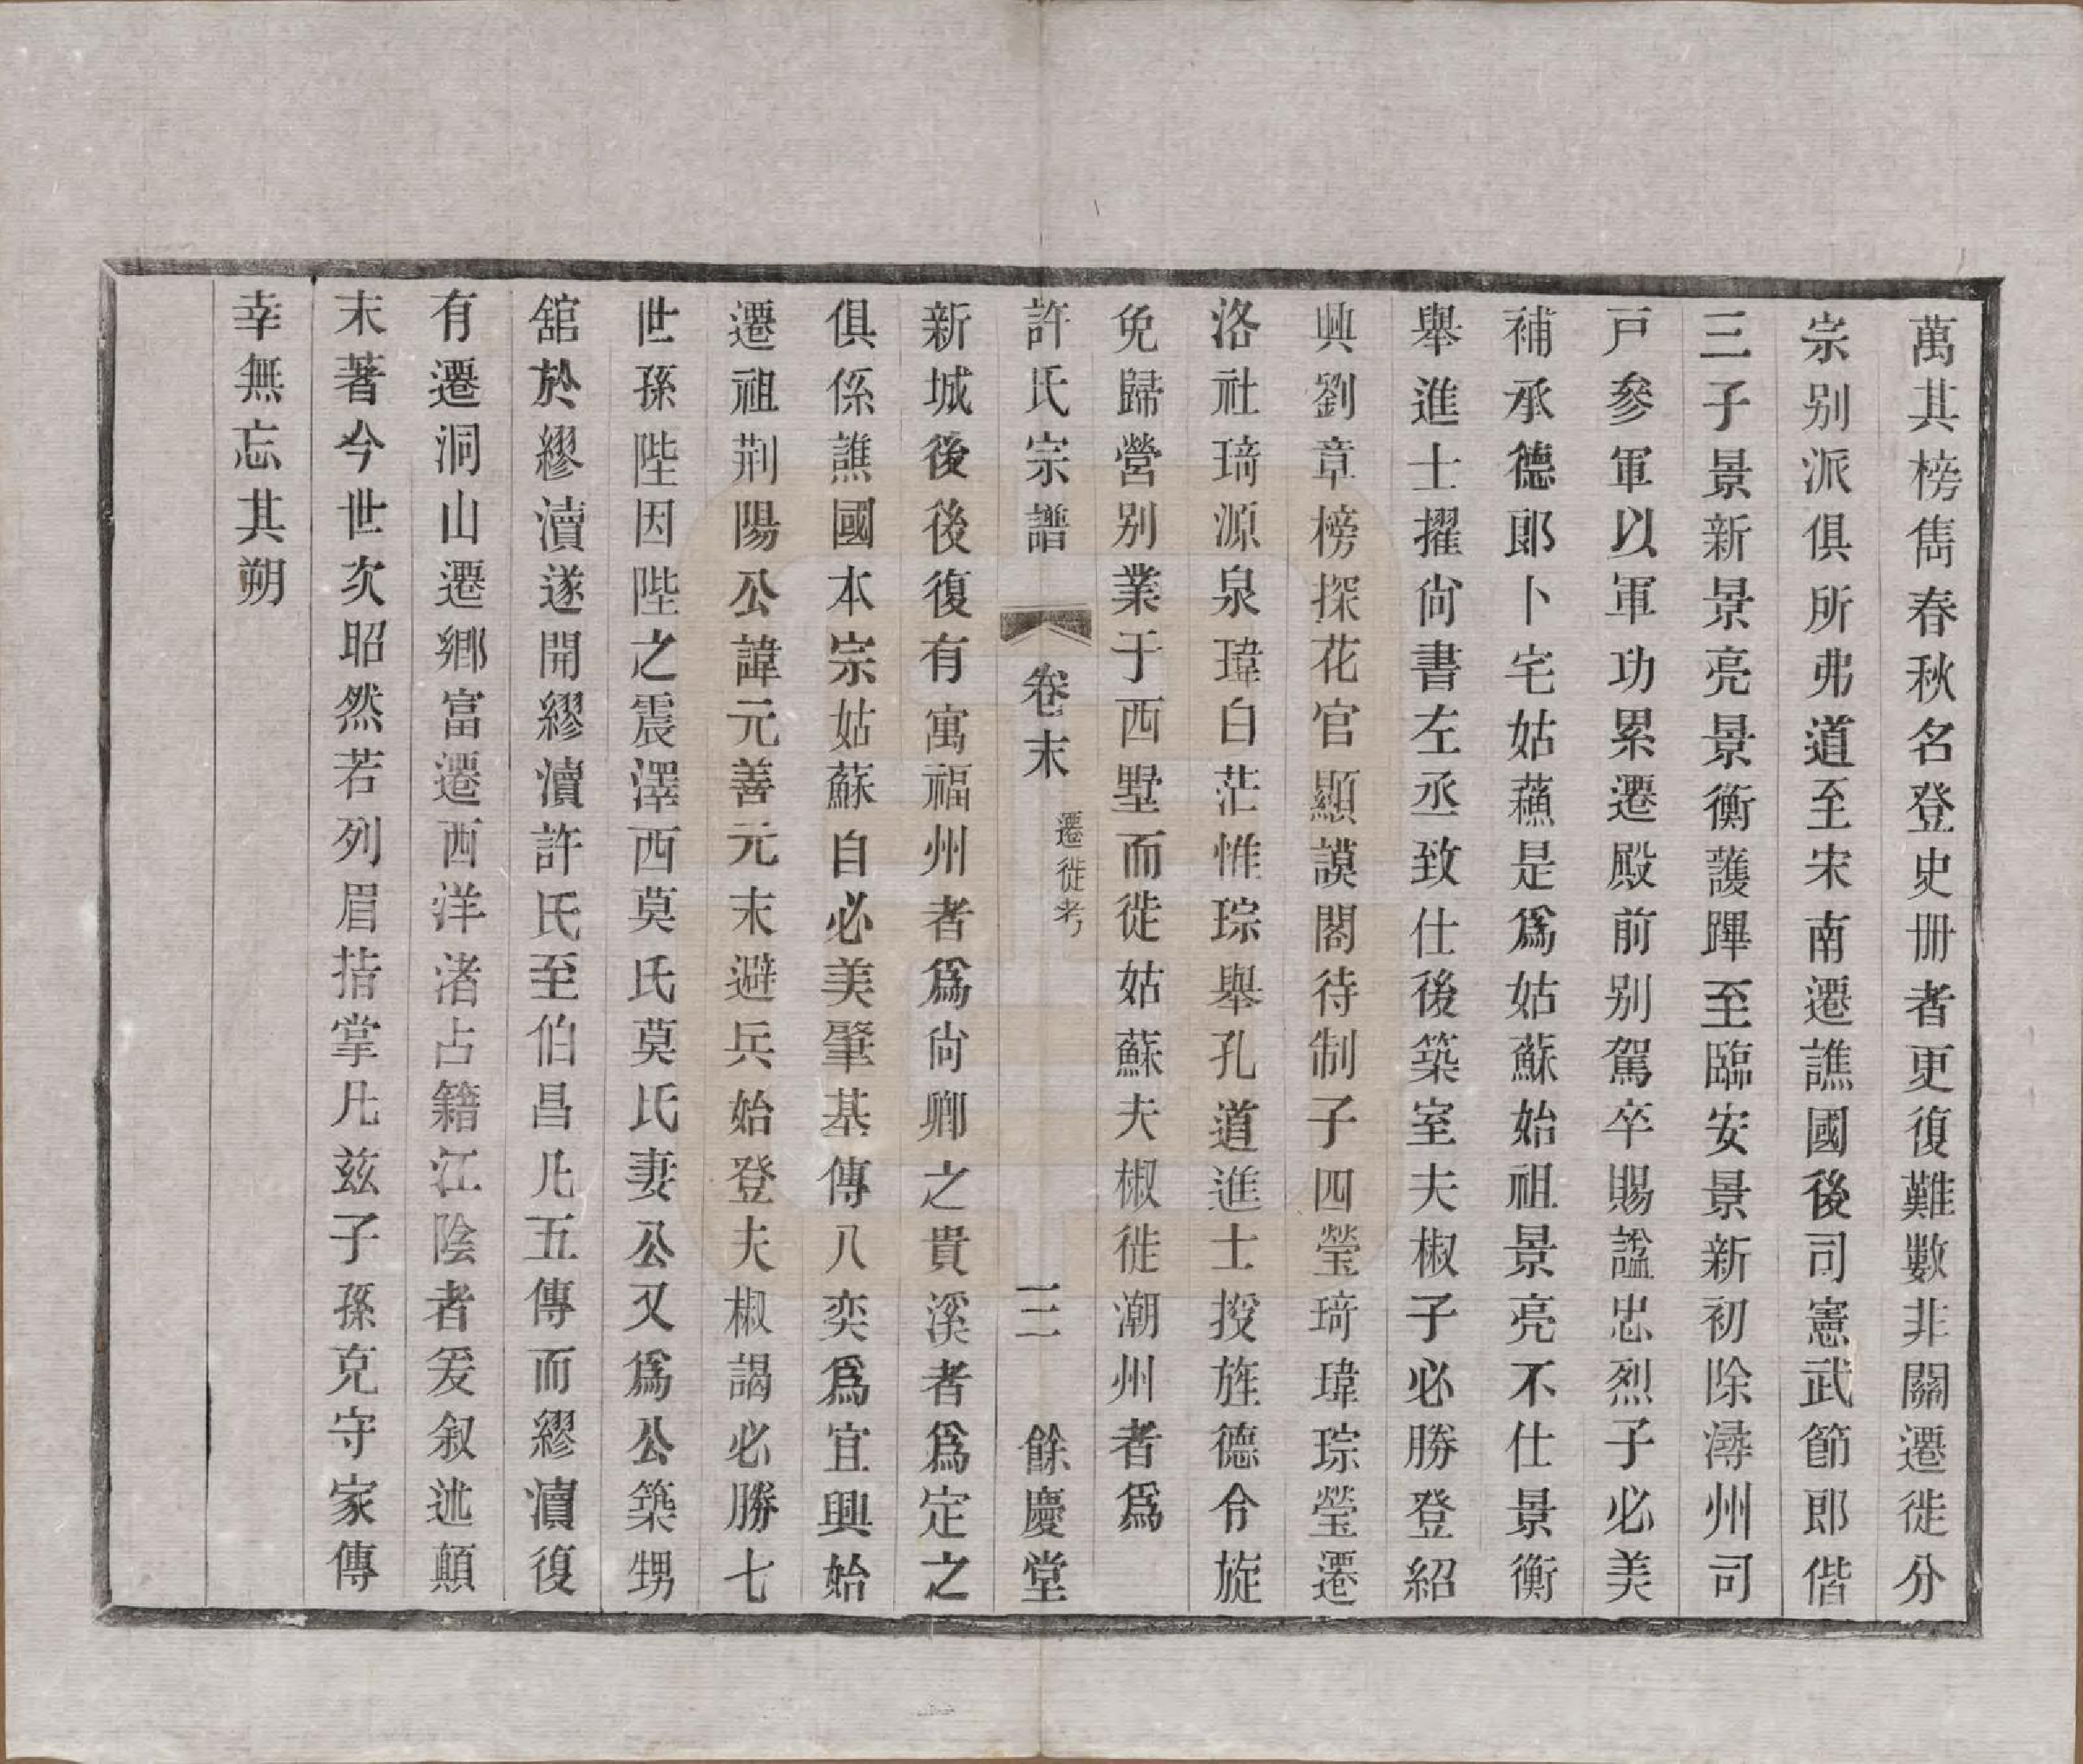 萬其榜雋春秋名登史册者更復難數非關遷徙分
宗别派俱所弗道至宋南遷譙國後司憲武節郎偕
三子景新景亮景衡護蹕至臨安景新初除潯州司
戸參軍以軍功累遷殿前别駕卒賜諡忠烈子必美
補承德郎卜宅姑蘓是爲姑蘇始祖景亮不仕景衡
舉進士擢尙書左丞致仕後築室夫椒子必勝登紹
興劉章榜探花官顯謨閣待制子四瑩琦瑋琮瑩遷
洛社琦源泉瑋白茫惟琮舉孔道進士授旌德令旋
免歸營别業于西墅而徙姑蘇夫椒徙潮州者爲
許氏宗譜 卷末 遷徙考 三 餘慶堂
新城後後復有寓福州者爲尙卿之貴溪者爲定之
俱係譙國本宗姑蘇自必美肇基傳八奕爲宜興始
遷祖荆陽公諱元善元末避兵始登夫椒謁必勝七
世孫陛因陛之震澤西莫氏莫氏妻公又爲公築甥
舘於繆瀆遂開繆瀆許氏至伯昌凡五傳而繆瀆復
有遷洞山遷鄉富遷西洋渚占籍江陰者爰叙述顛
末著今世次昭然若列眉指掌凡兹子孫克守家傳
幸無忘其朔